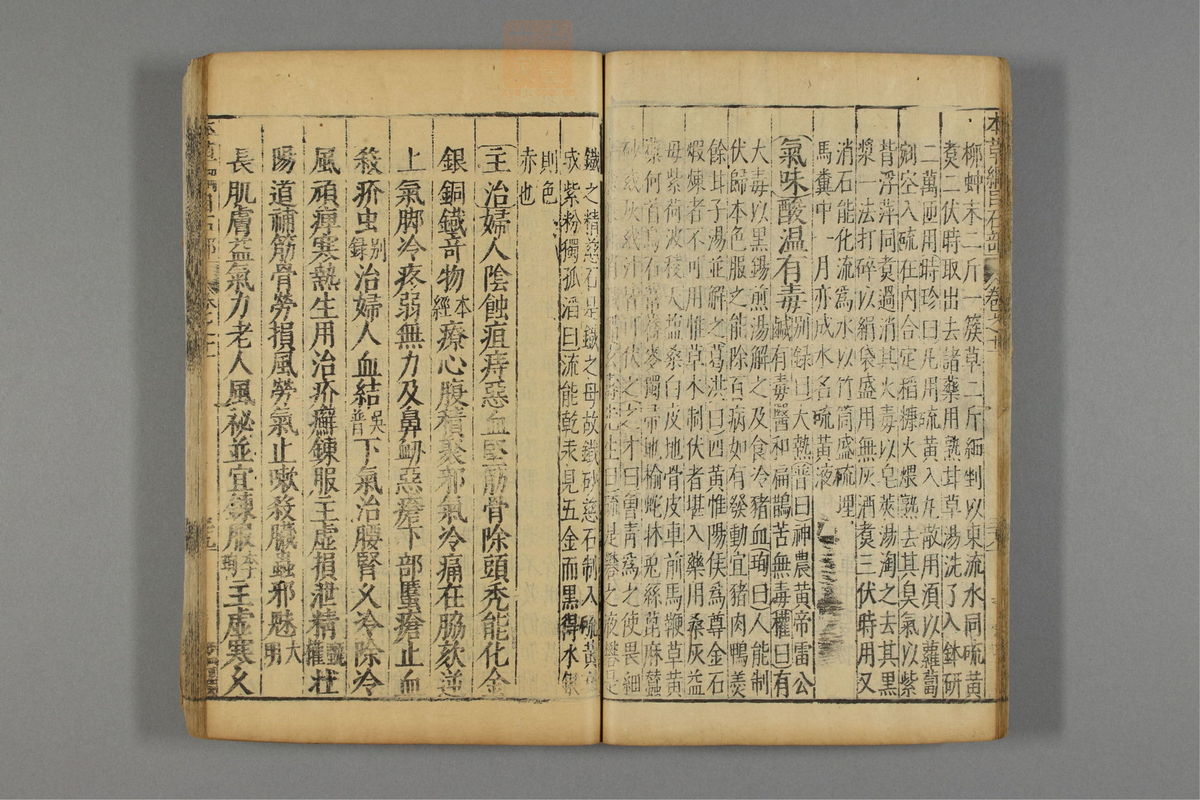 本草綱目石部 卷之十一
柳蚛末二斤一簇草二斤細剉以東流水同硫黃
煑二伏時取出去諸藥用熟甘草湯洗了入鉢研
二萬匝用時珍曰凡用硫黃入丸散用須以蘿蔔
剜空入硫在內合定稻糠火煨熟去其臭氣以紫
背浮萍同煑過消其火毒以皂莢湯淘之去其黑
漿一法打碎以絹袋盛用無灰酒煑三伏時用又
消石能化硫為水以竹筒盛硫埋
馬糞中一月亦成水名硫黃液
氣味酸温有毒别録曰大熱普曰神農黃帝雷公
鹹有毒醫和扁鵲苦無毒權曰有
大毒以黑錫煎湯解之及食冷猪血珣曰人能制
伏歸本色服之能除百病如有發動宜猪肉鴨羹
餘甘子湯並解之葛洪曰四黃惟陽侯為尊金石
煆煉者不可用惟草木制伏者堪入藥用桑灰益
母紫荷波稜天鹽桑白皮地骨皮車前馬鞭草黃
蘗何首烏石韋蕎麥獨帚地榆蛇牀兔絲萆麻蠶
砂或灰或汁皆可伏之之才曰曾青為之使畏細
鐵之精慈石是鐵之母故鐵砂慈石制入硫黃
成紫粉獨孤滔曰流能乾汞見五金而黑得水銀
則色
赤也
主治婦人陰蝕疽痔惡血堅筋骨除頭禿能化金
銀銅鐵竒物本經療心腹積聚邪氣冷痛在脇欬逆
上氣脚冷疼弱無力及鼻衂惡瘡下部䘌瘡止血
殺疥虫别録治婦人血結吳普下氣治腰腎久冷除冷
風頑痺寒熱生用治疥癬鍊服主虛損泄精甄權壯
陽道補筋骨勞損風勞氣止嗽殺臟蟲邪魅大明
長肌膚益氣力老人風秘並宜鍊服李珣主虛寒久